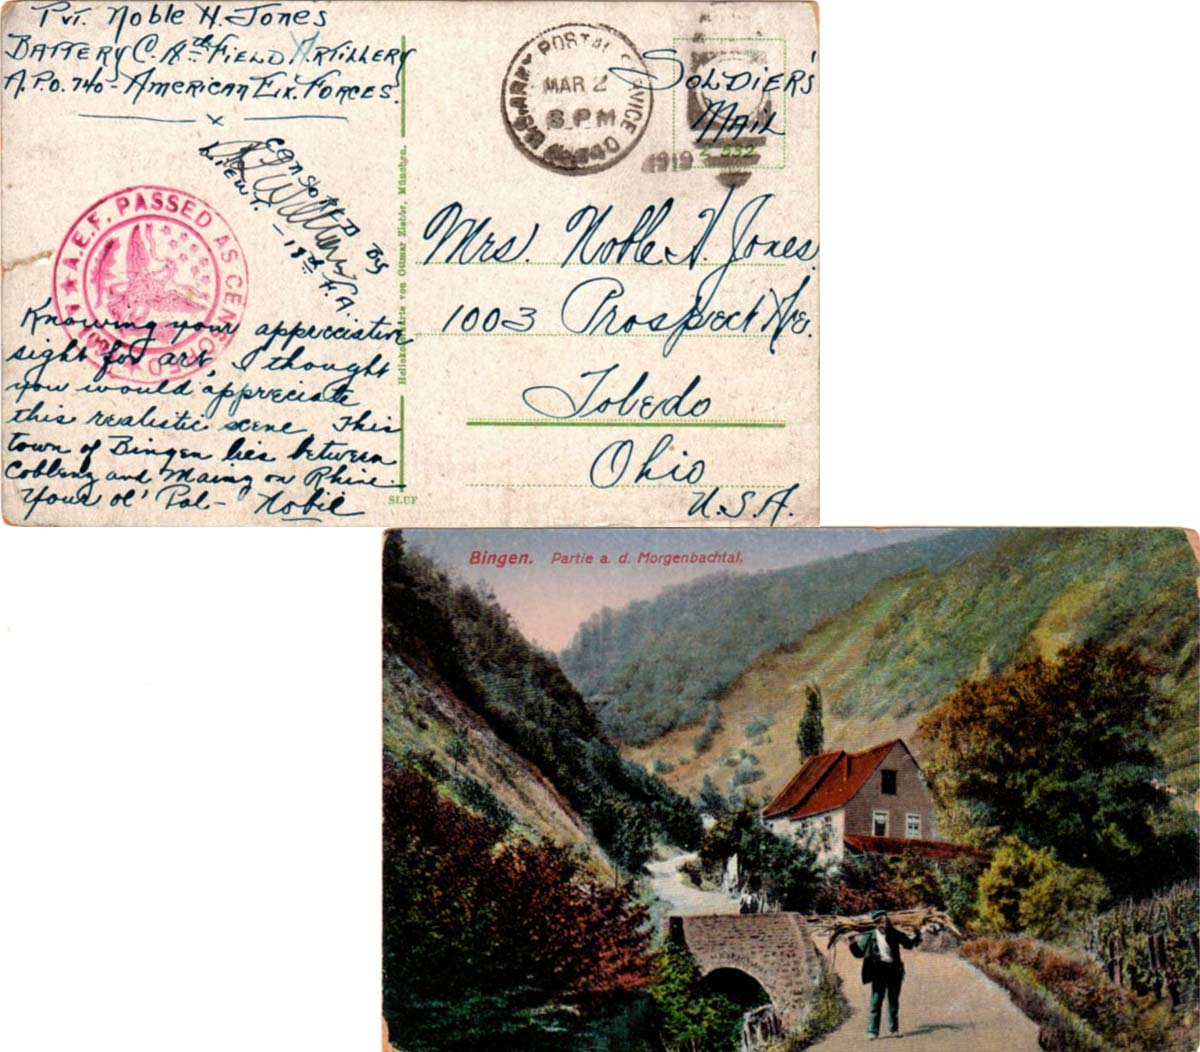 Pvt. Noble H. Jones
Battery C. 18th Field Artillery
A.P.O. 740 - American Ex. Forces.
x
Censored By
Lieut. - 18th F.A.
A.E.F. PASSED AS CENSORED
Knowing your appreciative
sight for art, I thought
you would appreciate
this realistic scene This
town of Bingen lies between
Coblenz and Mainz on Rhine.
Your ol' Pal - Nobie
Heliokolorkarte von Ottmar Zieher, München.
SLUF
U.S. ARMY POSTAL SERVICE
MAR 2
8 PM
No 740
1919
Soldier's
Mail
Z 532
Mrs. Noble H. Jones.
1003 Prospect Ave.
Toledo
Ohio
U.S.A.
Bingen. Partie a. d. Morgenbachtal.